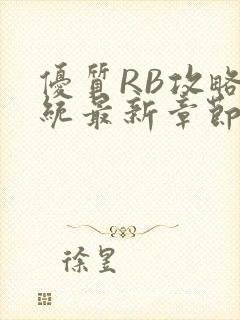 優質RB攻略
統最新章節
徐昱